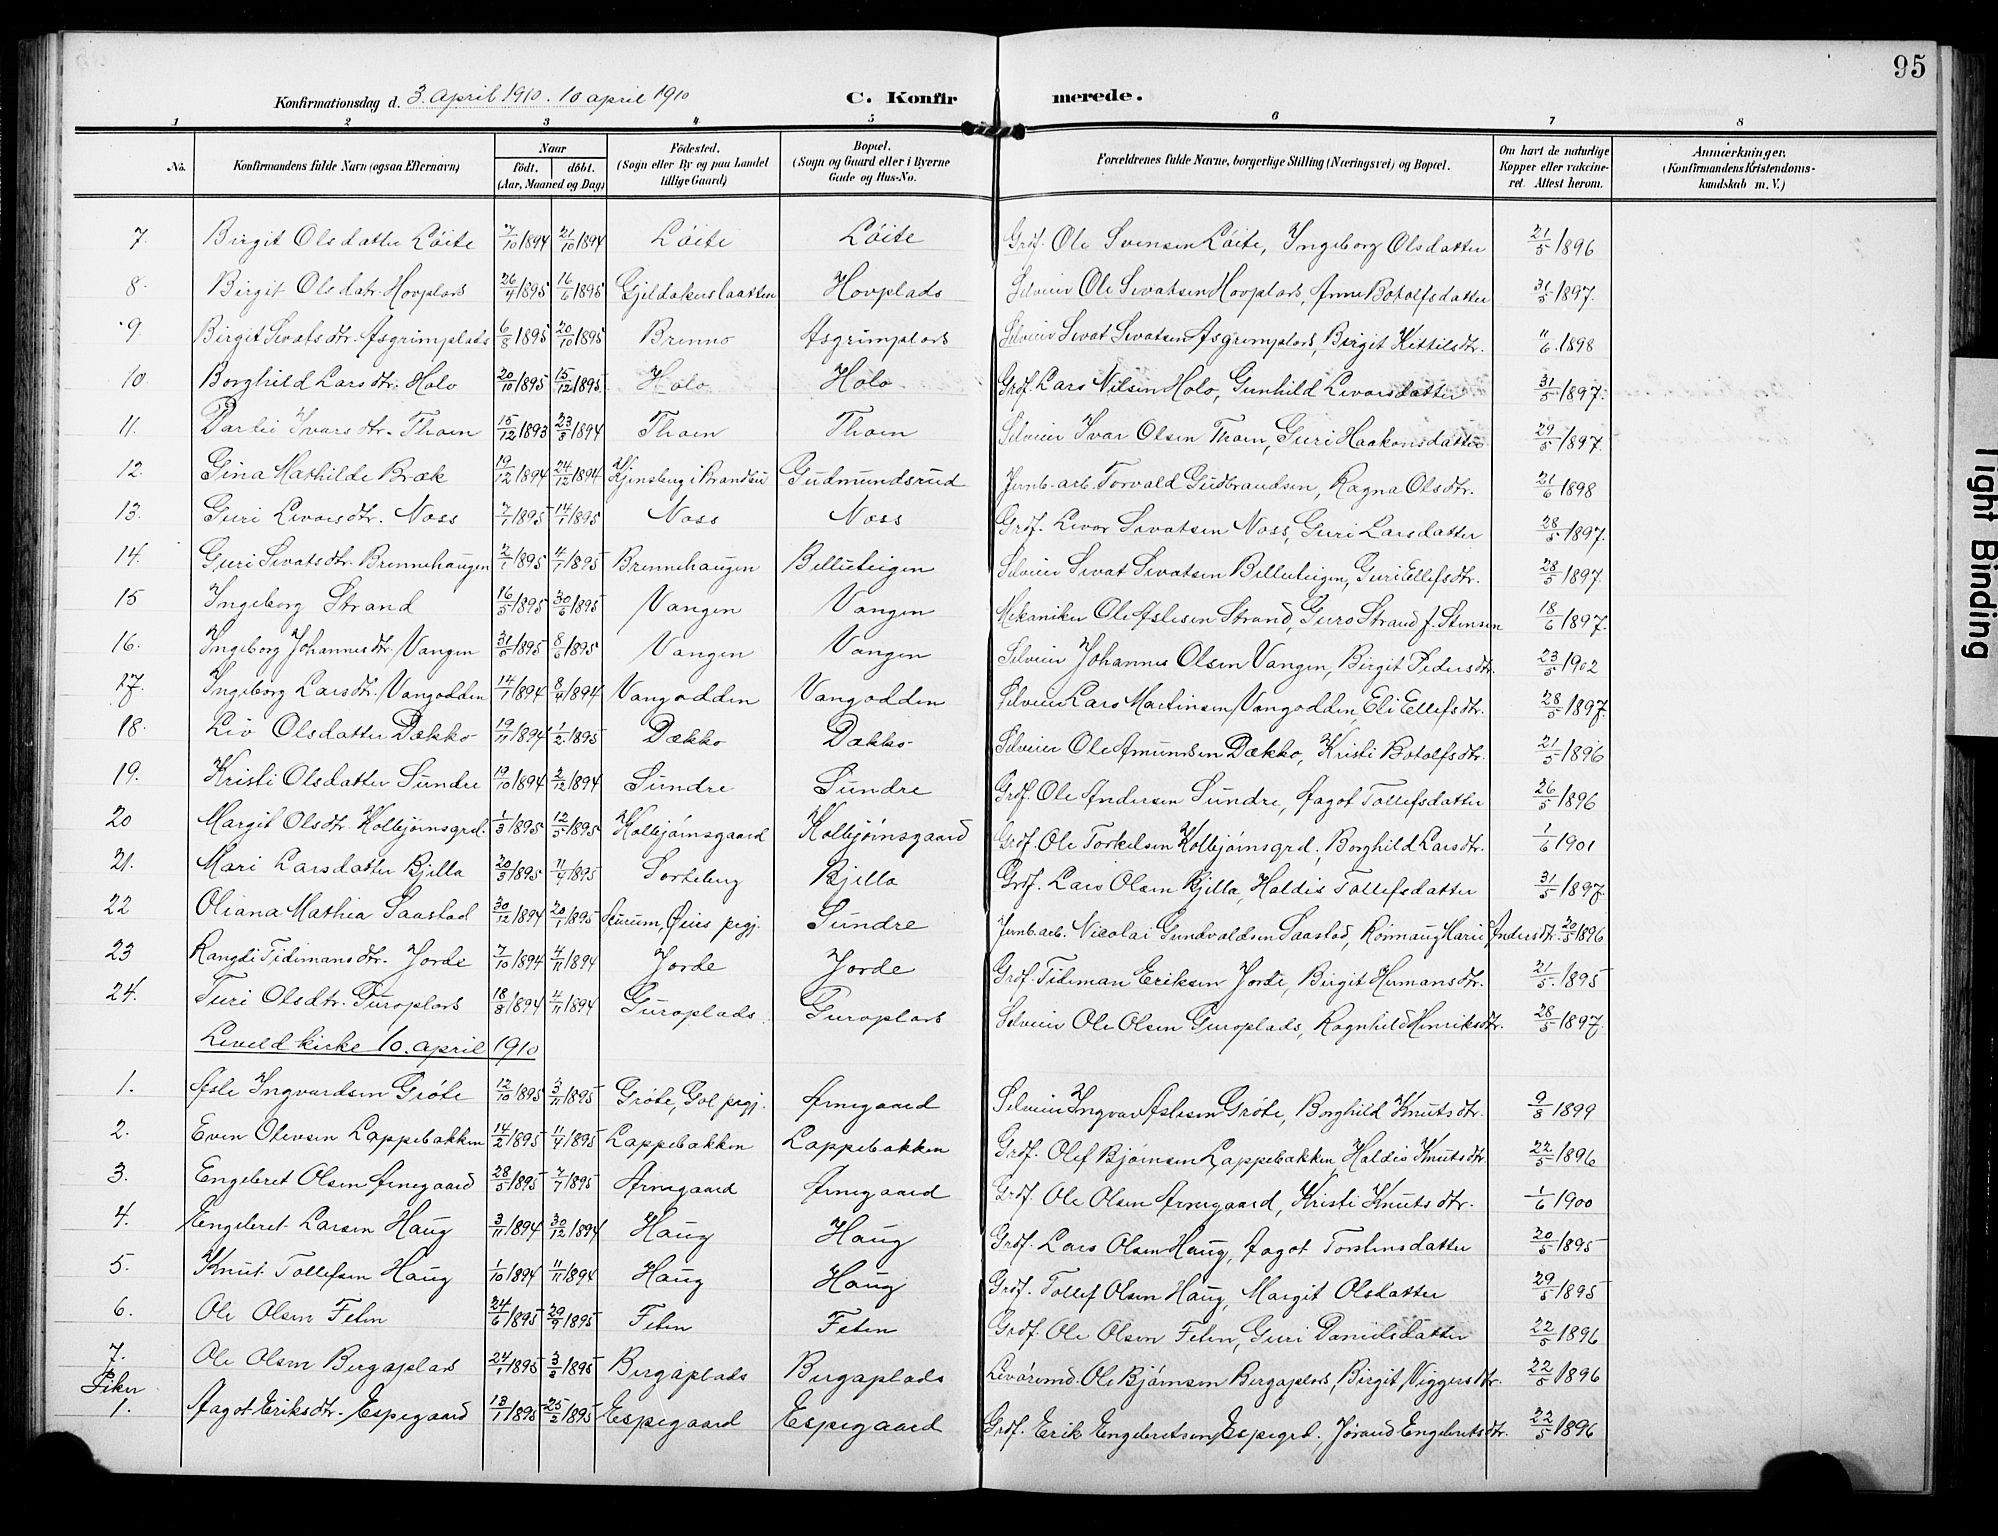 95
Konfirmationsdag d. 3. april 1910. 10 april 1910 C. Konfir merede.
1 2 3 4 5 6 7 8
No. Konfirmandens fulde Navn (ogsaa Efternavn) Naar født. døbt. (Aar, Maaned og Dag) Fødested. (Sogn eller By og paa Landet tillige Gaard) Bopæl. (Sogn og Gaard eller i Byerne Gade og Hus-No. Forældrenes fulde Navne, borgerlige Stilling (Næringsvei) og Bopæl. Om havt de naturlige Kopper eller vakcineret. Attest herom. Anmærkninger, (Konfirmandens Kristendomskundskab m. V.)
7. Birgit Olsdatter Löite 7/10 1894 21/10 1894 Löite Löite Grdf. Ole Svensen Löite, Ingeborg Olsdatter 21/5 1896
8. Birgit Olsdatr. Hovplads 26/4 1895 16/6 1895 Gjeldokerslaatten Hovplads Selveier Ole Sivatsen Hovplads, Anne Botolfsdatter 31/5 1897.
9 Birgit Sivatsdtr. Asgrimplads 6/8 1895 20/10 1895 Brenno Asgrimplads Selveier Sivat Sivatsen Asgrimplads, Birgit Kittilsdtr. 11/6 1898
10. Borghild Larsdtr. Holo 20/10 1895 15/12 1895 Holo Holo Grdf. Lars Nilsen Holo, Gunhild Livorsdatter 31/5 1897.
11. Ivarsdtr. Thoen 15/12 1893 23/3 1894 Thoen Thoen Selveier Ivar Olsen Thoen, Guri Haakonsdatter 29/5 1897.
12. Gina Mathilde Bræk 19/12 1894 24/12 1894 i Brandbu Gudmundsrud Jernb.-arb. Torvald Gudbrandsen, Ragna Olsdtr. 21/6 1898
13. Guri Livorsdtr. Noss 7/1 1895 14/1 1895 Noss Noss Grdf. Livor Sivatsen Noss, Guri Larsdatter 28/5 1897.
14. Guri Sivatsdtr. Brennehaugen 2/1 1895 4/1 1895 Brennehaugen Belleteigen Selveier Sivat Sivatsen Belleteigen, Guri Ellefsdtr. 28/5 1897.
15 Ingeborg Strand 16/5 1895 30/6 1895 Vangen Vangen Mekaniker Ole Aslesen Strand, Guro Strand f. Stensen 18/6 1897.
16. Ingeborg Johannesdtr. Vangen 31/5 1895 8/6 1895 Vangen Vangen Selveier Johannes Olsen Vangen, Birgit Pedersdtr. 23/5 1902
17. Ingeborg Larsdtr. Vangodden 14/1 1894 8/4 1894 Vangodden Vangodden Selveier Lars Martinsen Vangodden, Eli Ellefsdtr. 28/5 1897.
18. Liv Olsdatter Dækko 19/11 1894 1/2 1895 Dækko Dækko Selveier Ole Amundsen Dækko, Kristi Botolfsdtr. 21/5 1896
19. Kristi Olsdatter Sundre 19/10 1894 2/12 1894 Sundre Sundre Grdf. Ole Andersen Sundre, Aagot Tollefsdatter 26/5 1896
20 Margit Olsdtr. Kolbjörnsgrd. 1/3 1895 12/5 1895 Kolbjörnsgaard Kolbjörnsgaard Grdf. Ole Torkelsen Kolbjörnsgrd., Borghild Larsdtr. 1/6 1901
21. Mari Larsdatter Bjella 20/3 1895 11/4 1895 Sorteberg Bjella Grdf. Lars Olsen Bjella, Haldis Tollefsdatter 31/5 1897.
22 Oliana Mathea Saastad 30/12 1894 20/1 1895 prgj. Sundre Jernb.arb. Nicolai Gundvaldsen Saastad, Rönnaug Marie Andersdtr. 20/5 1896
23 Rangdi Tidemansdtr. Jorde 7/10 1894 4/11 1894 Jorde Jorde Grdf. Tideman Eriksen Jorde, Birgit Hermansdtr. 21/5 1895
24. Turi Olsdtr. Guroplads 18/8 1894 4/11 1894 Guroplads. Guroplads Selveier Ole Olsen Guroplads, Ragnhild Henriksdtr. 28/5 1897.
Leveld kirke 10. april 1910
1. Asle Ingvardsen Gröte 12/10 1895 3/11 1895 Gröte, Gol prgj. Arnegaard Selveier Ingvar Aslesen Gröte, Borghild Knutsdtr. 9/8 1899
2. Even Olevsen Lappebakken 14/2 1895 11/4 1895 Lappebakken Lappebakken Grdf. Olef Björnsen Lappebakken, Haldis Knutsdtr. 22/5 1896
3. Engebret Olsen Arnegaard 28/5 1895 7/7 1895 Arnegaard Arnegaard Grdf. Ole Olsen Arnegaard, Kristi Knutsdtr. 1/6 1900
4. Engebret Larsen Haug 3/11 1894 30/12 1894 Haug Haug Grdf. Lars Olsen Haug, Aagot Torstensdatter 20/5 1895
5. Knut Tollefsen Haug 1/10 1894 11/11 1894 Haug Haug Grdf. Tollef Olsen Haug, Margit Olsdatter 29/5 1895
6. Ole Olsen Feten 24/6 1895 29/9 1895 Feten Feten Grdf. Ole Olsen Feten, Guri Danielsdatter 22/5 1896
7. Ole Olsen Bergaplads 24/1 1895 3/3 1895 Bergaplads Bergaplads Livöremd. Ole Björnsen Bergaplads, Birgit Viggersdtr. 22/5 1896
Piker
1. Aagot Eriksdtr. Espegaard 13/1 1895 25/2 1895 Espegaard Espegaard Grdf. Erik Engebretsen Espegrd. Jörand Engebretsdtr. 22/5 1896
Tight Binding